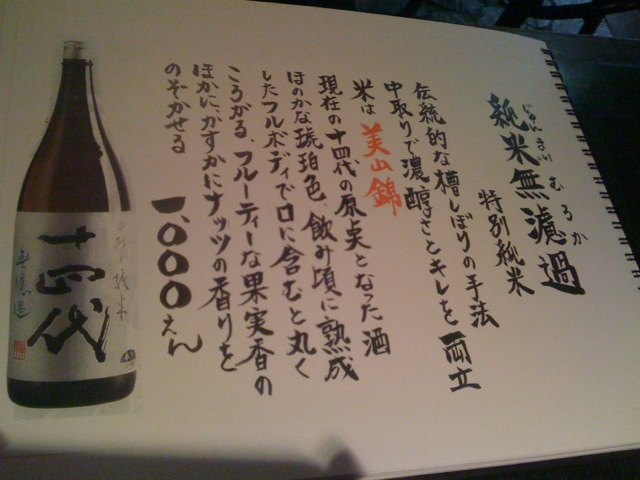 純米無濾過
じゅんまいむろか
特別純米
伝統的な槽しぼりの手法
中取りで濃醇さとキレを両立
米は美山錦
現在の十四代の原点となった酒
ほのかな琥珀色、飲み頃に熟成
したフルボディで口に含むと丸く
ころがる、フルーティーな果実香の
ほかに、かすかにナッツの香りを
のぞかせる
一、〇〇〇えん
十四代
無濾過